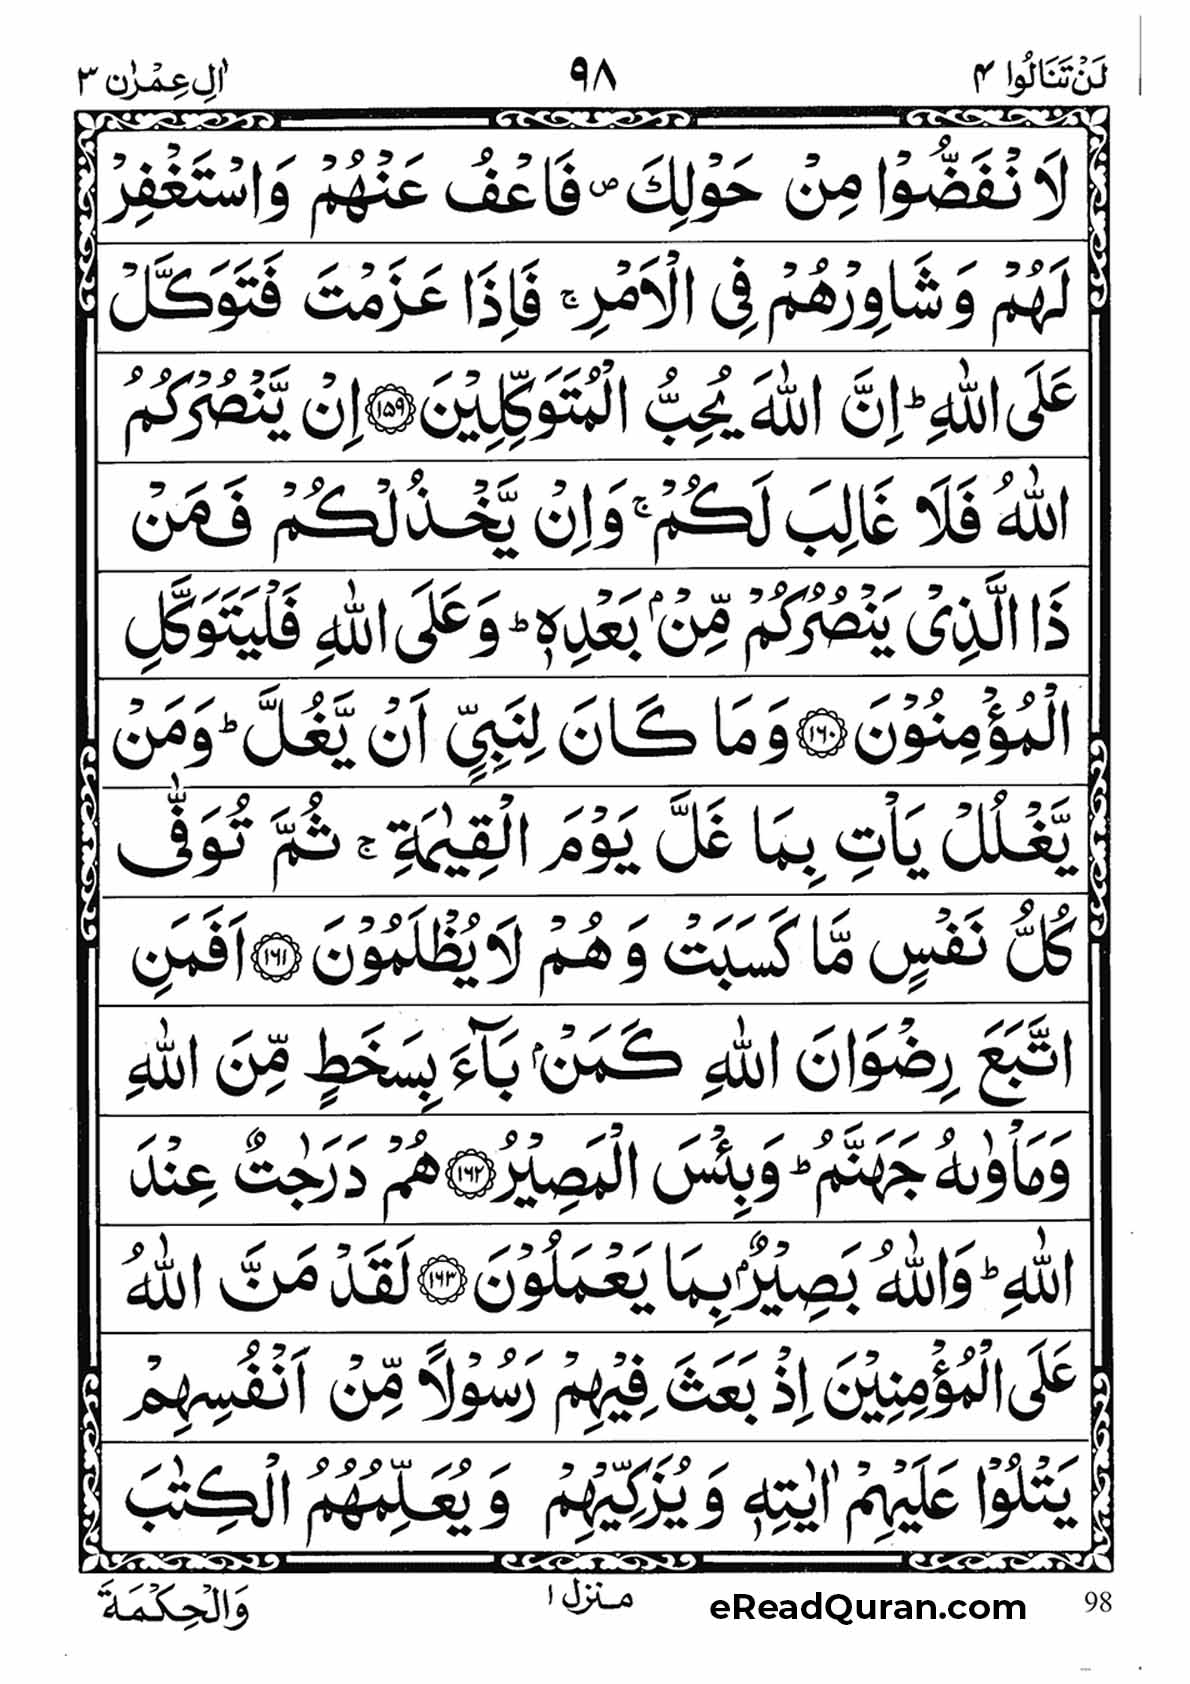 لَنْ تَنَالُوا ۴ ٩٨ اٰلِ عِمْرٰن ٣
لَا نْفَضُّوْا مِنْ حَوْلِكَ ۪ فَاعْفُ عَنْهُمْ وَاسْتَغْفِرْ
لَهُمْ وَشَاوِرْهُمْ فِي الْاَمْرِ ۚ فَاِذَا عَزَمْتَ فَتَوَكَّلْ
عَلَى اللّٰهِ ؕ اِنَّ اللّٰهَ يُحِبُّ الْمُتَوَكِّلِيْنَ ﴿۱۵۹﴾ اِنْ يَّنْصُرْكُمُ
اللّٰهُ فَلَا غَالِبَ لَكُمْ ۚ وَاِنْ يَّخْذُلْكُمْ فَمَنْ
ذَا الَّذِيْ يَنْصُرُكُمْ مِّنْۢ بَعْدِهٖ ؕ وَعَلَى اللّٰهِ فَلْيَتَوَكَّلِ
الْمُؤْمِنُوْنَ ﴿۱۶۰﴾ وَمَا كَانَ لِنَبِيٍّ اَنْ يَّغُلَّ ؕ وَمَنْ
يَّغْلُلْ يَاْتِ بِمَا غَلَّ يَوْمَ الْقِيٰمَةِ ۚ ثُمَّ تُوَفّٰى
كُلُّ نَفْسٍ مَّا كَسَبَتْ وَهُمْ لَا يُظْلَمُوْنَ ﴿۱۶۱﴾ اَفَمَنِ
اتَّبَعَ رِضْوَانَ اللّٰهِ كَمَنْۢ بَآءَ بِسَخَطٍ مِّنَ اللّٰهِ
وَمَاْوٰىهُ جَهَنَّمُ ؕ وَبِئْسَ الْمَصِيْرُ ﴿۱۶۲﴾ هُمْ دَرَجٰتٌ عِنْدَ
اللّٰهِ ؕ وَاللّٰهُ بَصِيْرٌۢ بِمَا يَعْمَلُوْنَ ﴿۱۶۳﴾ لَقَدْ مَنَّ اللّٰهُ
عَلَى الْمُؤْمِنِيْنَ اِذْ بَعَثَ فِيْهِمْ رَسُوْلًا مِّنْ اَنْفُسِهِمْ
يَتْلُوْا عَلَيْهِمْ اٰيٰتِهٖ وَيُزَكِّيْهِمْ وَيُعَلِّمُهُمُ الْكِتٰبَ
98 eReadQuran.com منزل ۱ وَالْحِكْمَةَ